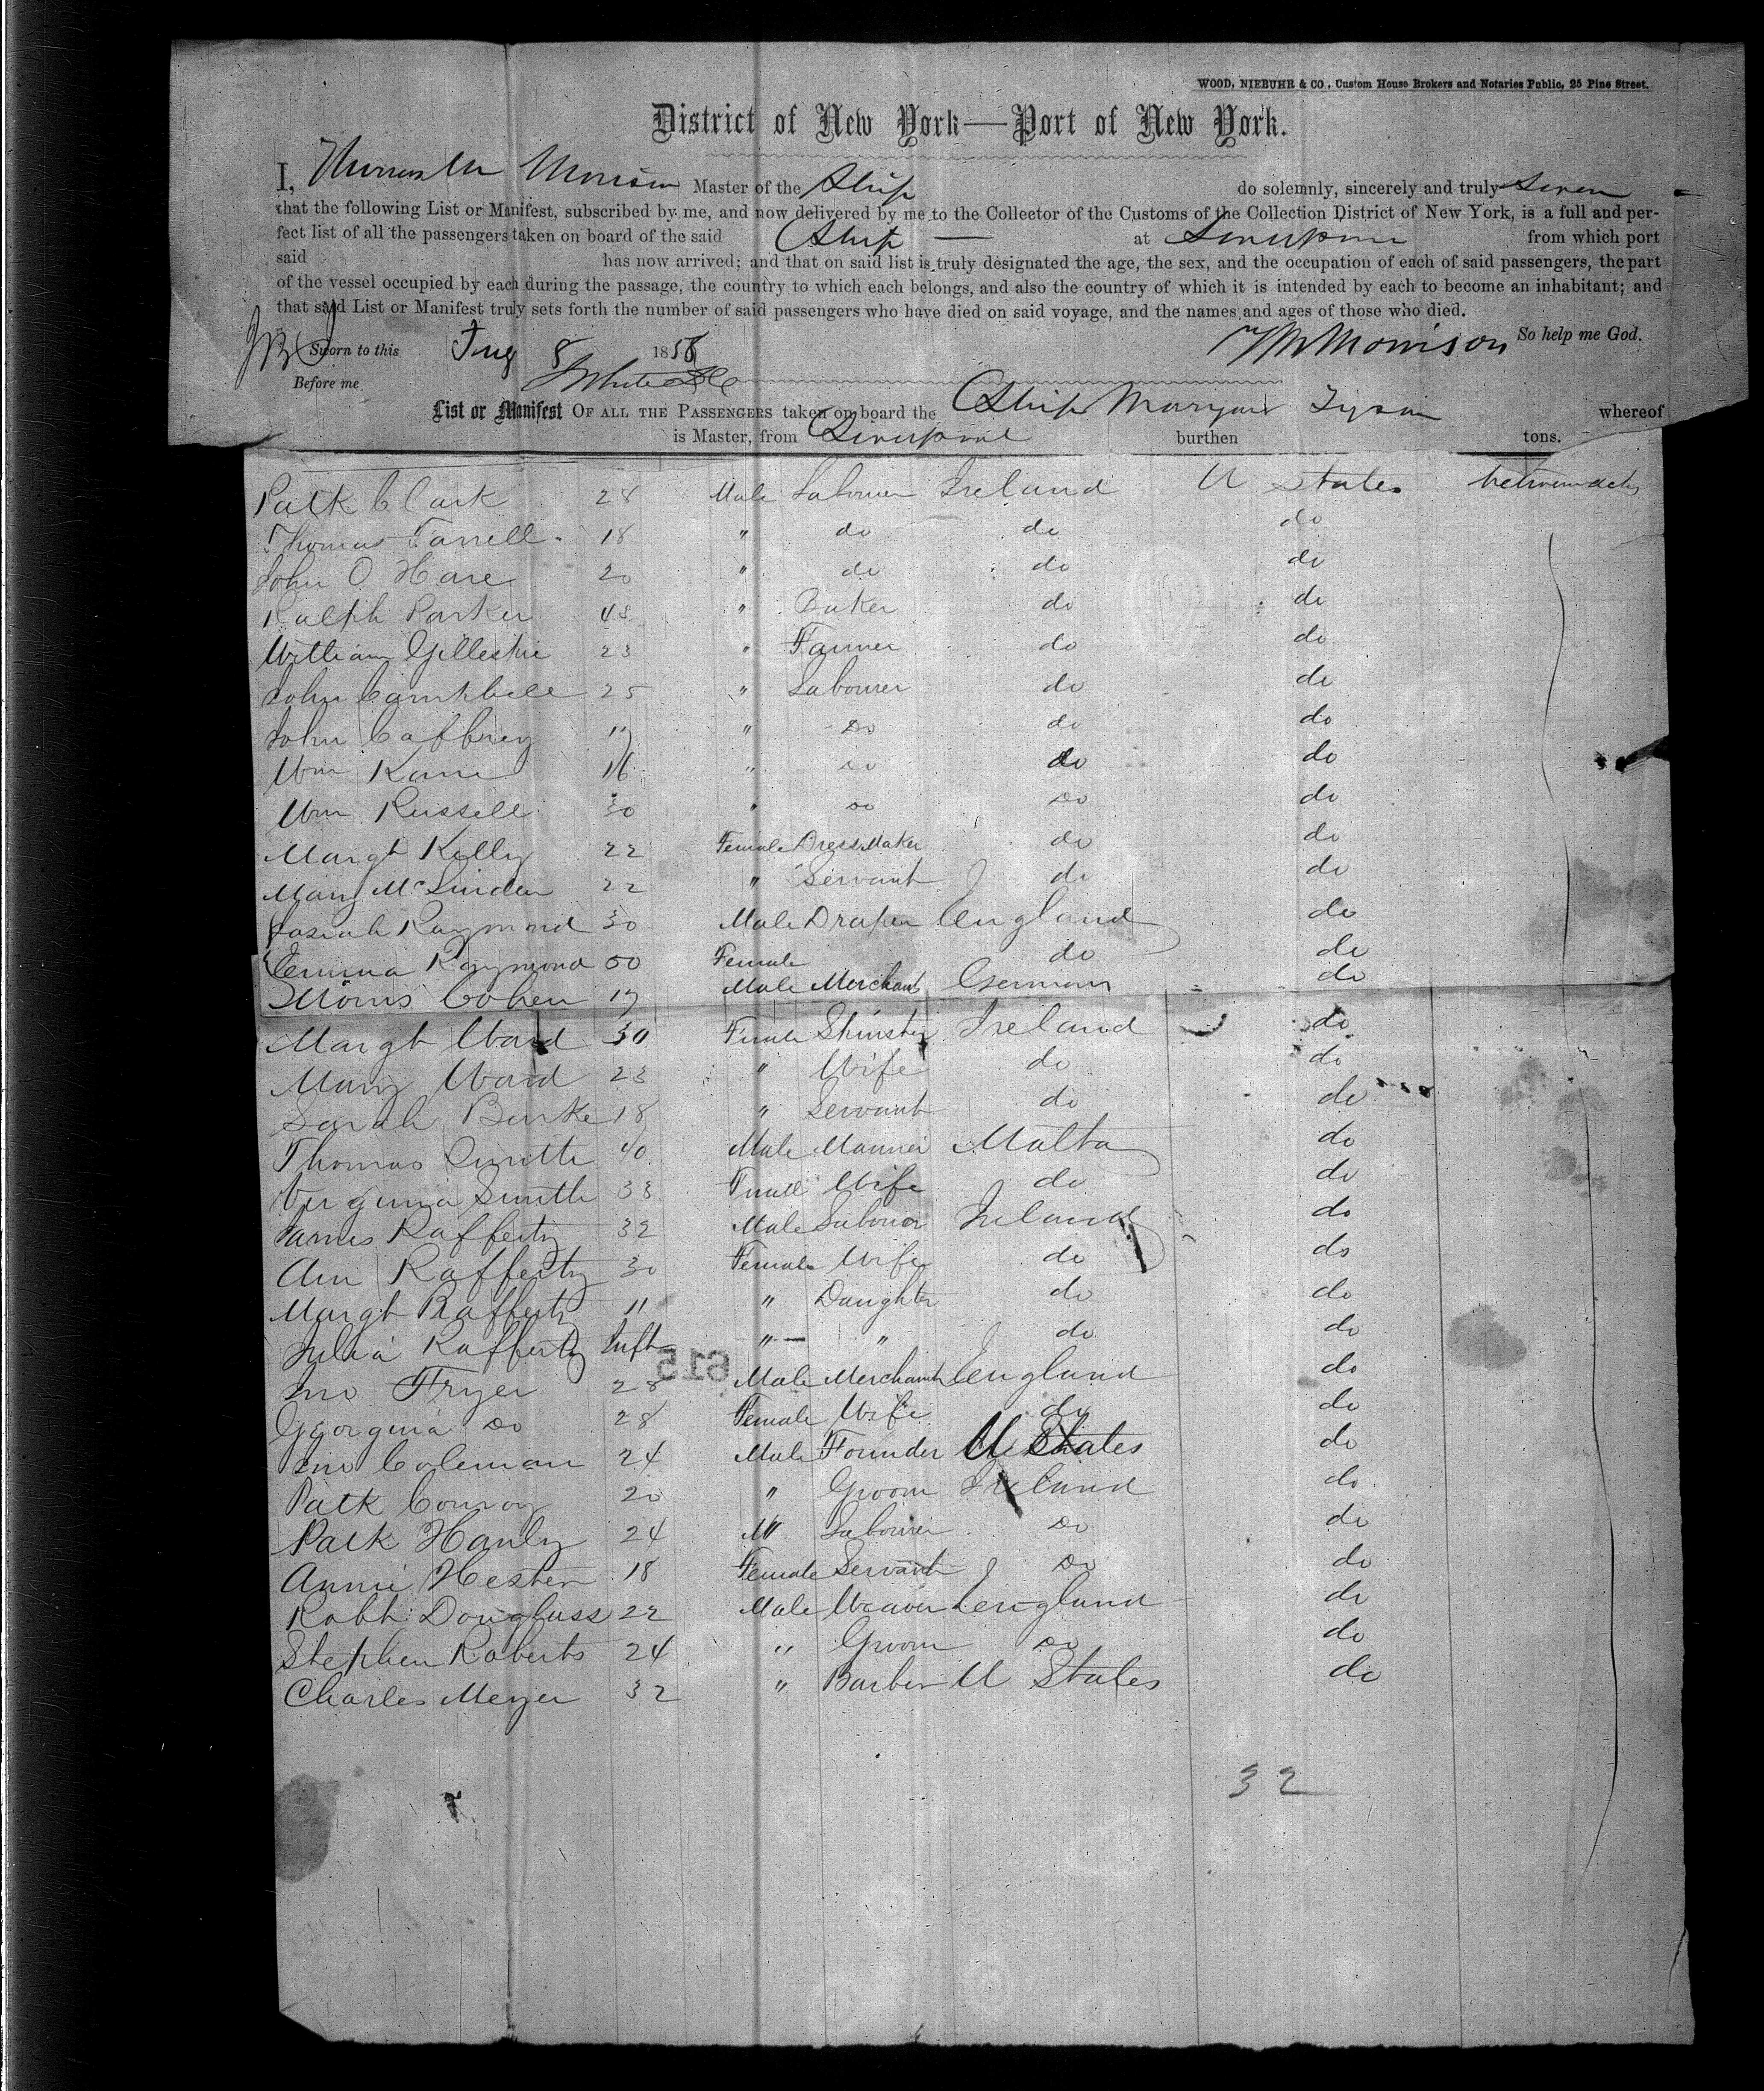 WOOD, NIEBUHR & CO., Custom House Brokers and Notaries Public, 25 Pine Street.
District of New York—Port of New York.
I, Morrison Master of the Ship do solemnly, sincerely and truly Swear
that the following List or Manifest, subscribed by me, and now delivered by me to the Collector of the Customs of the Collection District of New York, is a full and per-
fect list of all the passengers taken on board of the said Ship — at Liverpool from which port
said has now arrived; and that on said list is truly designated the age, the sex, and the occupation of each of said passengers, the part
of the vessel occupied by each during the passage, the country to which each belongs, and also the country of which it is intended by each to become an inhabitant; and
that said List or Manifest truly sets forth the number of said passengers who have died on said voyage, and the names and ages of those who died.
Sworn to this Aug 8 1856 Morrison So help me God.
Before me
List or Manifest OF ALL THE PASSENGERS taken on board the Ship whereof
is Master, from Liverpool burthen tons.
Patk Clark 28 Male Labourer Ireland U States between decks
Thomas Farrell 18 " do do do
John O Hare 20 " do do do
Ralph Parker 43 " Baker do do
William Gilleskie 23 " Farmer do do
John Campbell 25 " Labourer do do
John Caffrey 19 " Do do do
Wm Kane 16 " Do do do
Wm Russell 30 " Do Do do
Margt Kelly 22 Female Dress Maker do do
Mary McLinden 22 " Servant do do
Josiah Raymond 30 Male Draper England do
Emma Raymond 00 Female do do
Morris Cohen 19 Male Merchant German do
Margt Ward 30 Female Spinster Ireland do
Mary Ward 23 " Wife do do
Sarah Burke 18 " Servant do do
Thomas Smith 40 Male Mariner Malta do
Verginia Smith 33 Femall Wife do do
James Rafferty 32 Male Labourer Ireland do
Ann Rafferty 30 Female Wife do do
Margt Rafferty 11 " Daughter do do
Julia Rafferty Inft " — " do do
615
Jno Fryer 28 Male Merchant England do
Georgina Do 28 Female Wife do do
Jno Coleman 24 Male Founder U States do
Patk Conroy 20 " Groom Ireland do
Patk Hanly 24 M" Labourer Do do
Annie Hester 18 Female Servant Do do
Robt Douglass 22 Male Weaver England do
Stephen Roberts 24 " Groom Do do
Charles Meyer 32 " Barber U States do
32